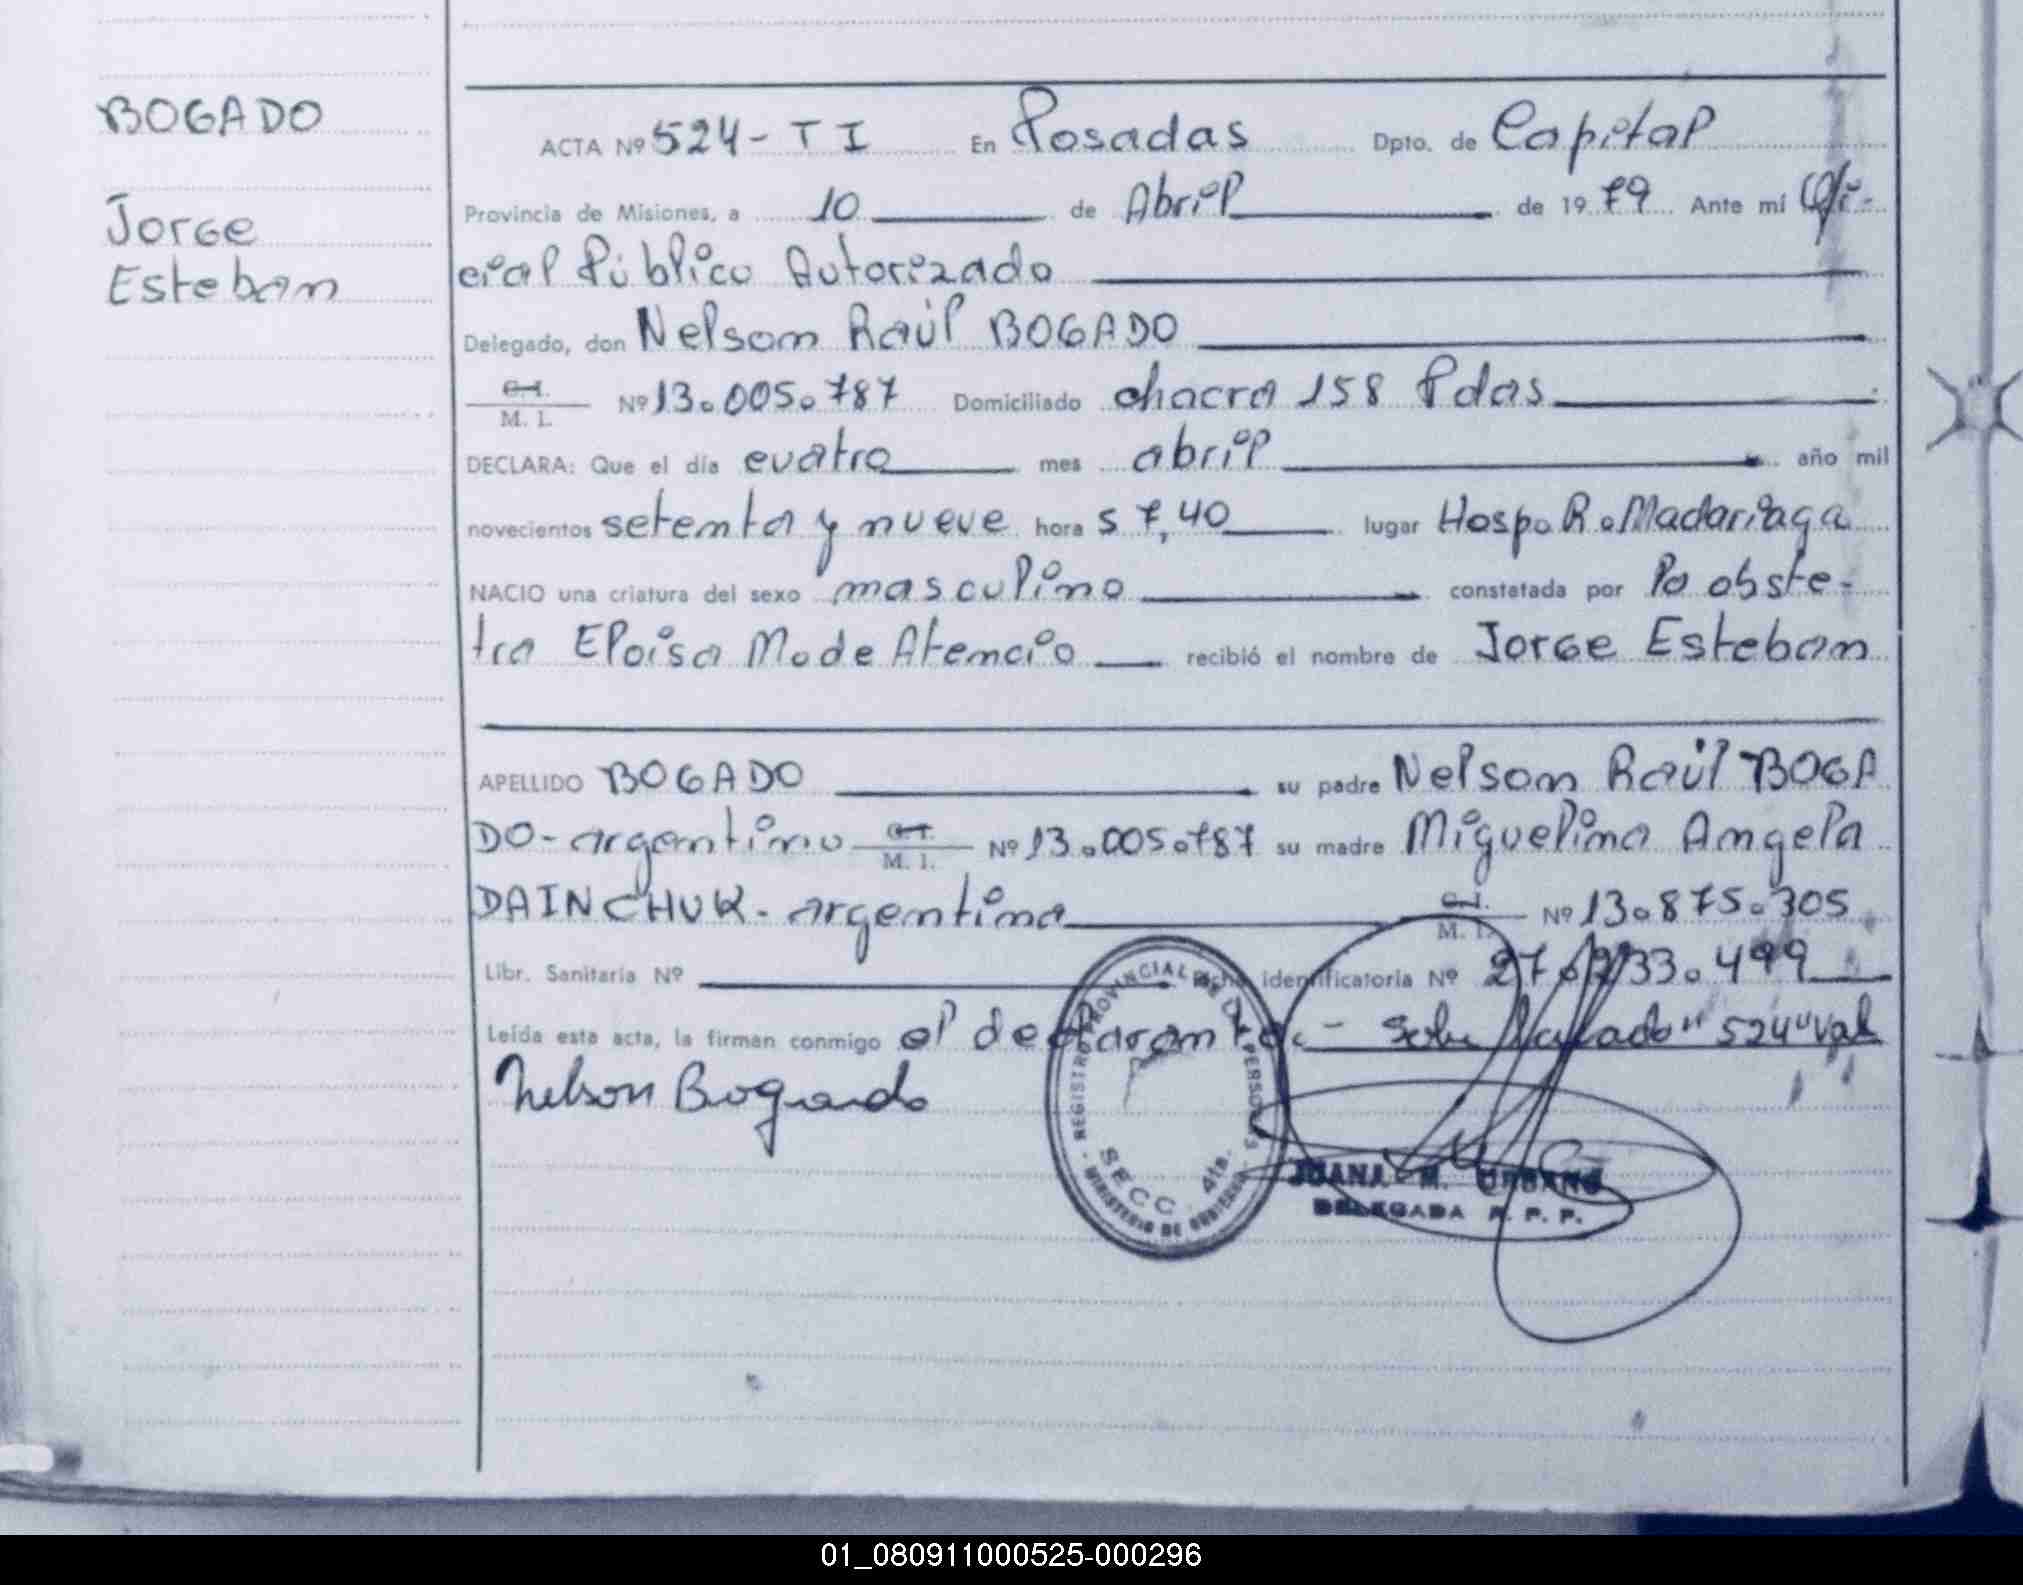 BOGADO
Jorge
Esteban
ACTA Nº 524-TI En Posadas Dpto. de Capital
Provincia de Misiones, a 10 de Abril de 1979 Ante mí Ofi-
cial Público Autorizado
Delegado, don Nelson Raúl BOGADO
C.I. M. I. Nº 13.005.787 Domiciliado chacra 158 Pdas
DECLARA: Que el día cuatro mes abril año mil
novecientos setenta y nueve hora s 7,40 lugar Hosp. R. Madariaga
NACIO una criatura del sexo masculino constatada por la obste-
tra Eloisa M de Atencio recibió el nombre de Jorge Esteban
APELLIDO BOGADO su padre Nelson Raúl BOGA
DO-argentino C.I. M. I. Nº 13.005.787 su madre Miguelina Angela
DAINCHUK-argentina C.I. M. I. Nº 13.875.305
Libr. Sanitaria Nº Ficha identificatoria Nº 27.233.499
Leída esta acta, la firman conmigo el declarante.- Sobre "524" Vale
Nelson Bogado
REGISTRO PROVINCIAL DE LAS PERSONAS
SECC. 4ta.
MINISTERIO DE GOBIERNO
JUANA M. URBANO
DELEGADA R. P. P.
01_080911000525-000296